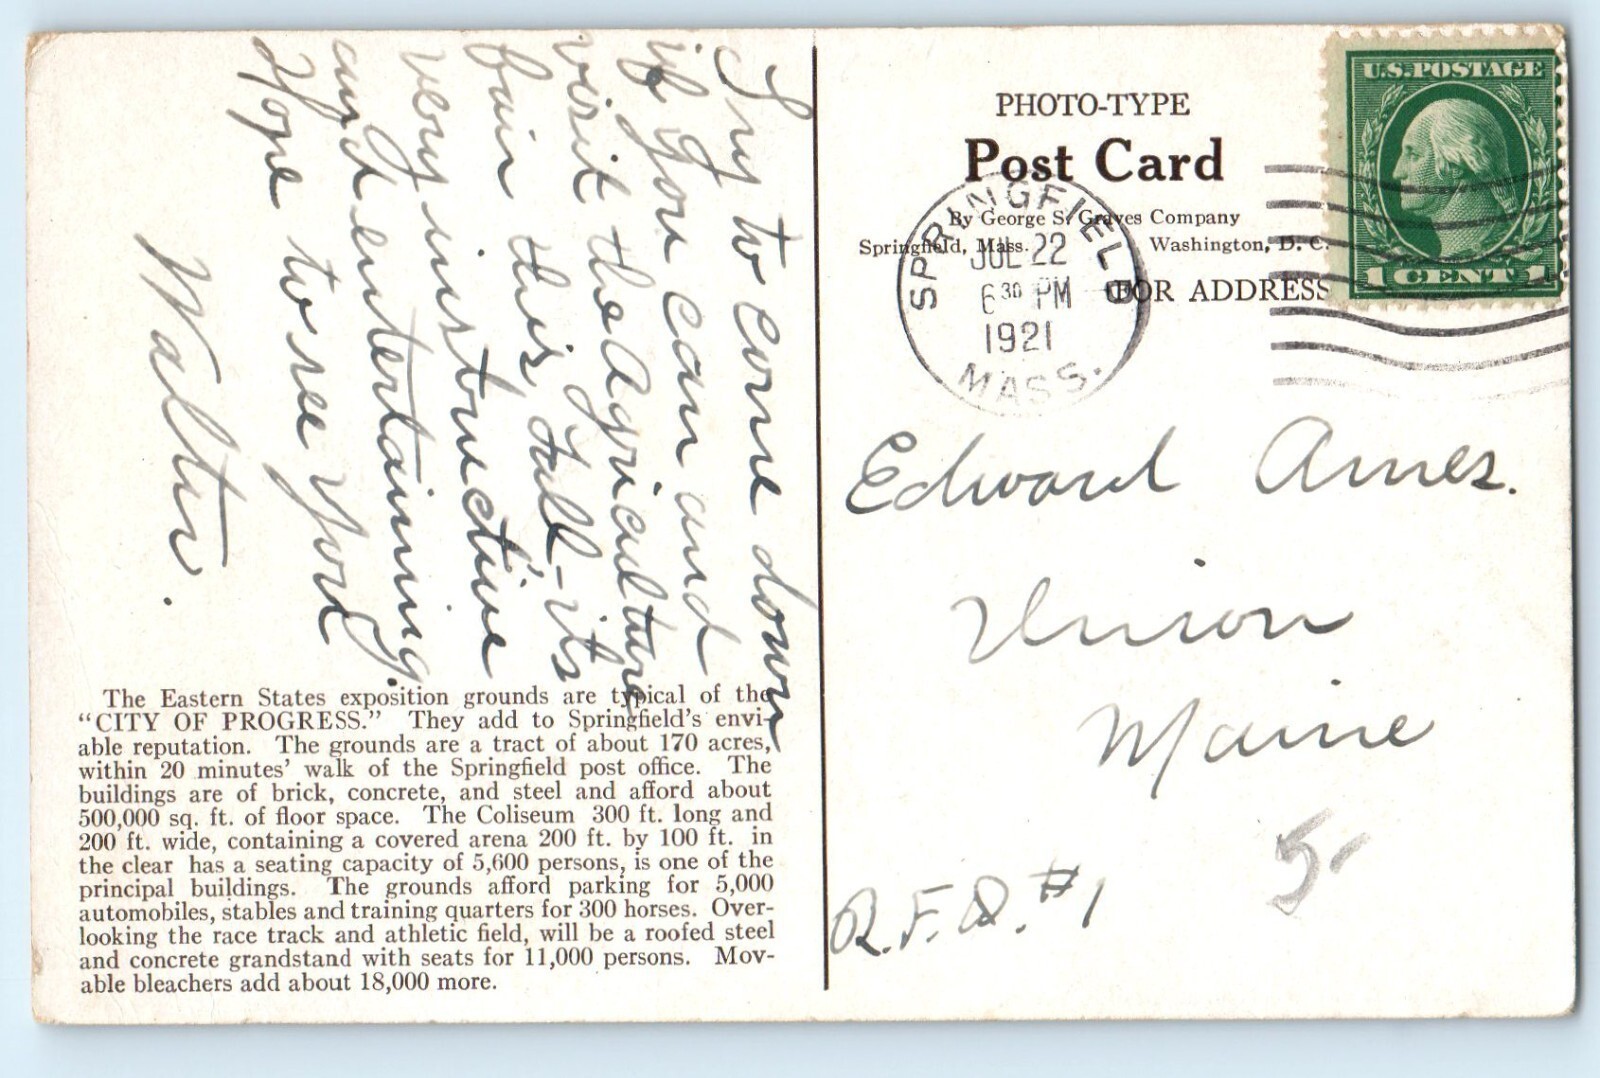 Try to come down
if you can and
visit the Agriculture
fair this, Fall - its
very instructive
and entertaining.
Hope to see you
Walter.
The Eastern States exposition grounds are typical of the
“CITY OF PROGRESS.” They add to Springfield’s envi-
able reputation. The grounds are a tract of about 170 acres,
within 20 minutes’ walk of the Springfield post office. The
buildings are of brick, concrete, and steel and afford about
500,000 sq. ft. of floor space. The Coliseum 300 ft. long and
200 ft. wide, containing a covered arena 200 ft. by 100 ft. in
the clear has a seating capacity of 5,600 persons, is one of the
principal buildings. The grounds afford parking for 5,000
automobiles, stables and training quarters for 300 horses. Over-
looking the race track and athletic field, will be a roofed steel
and concrete grandstand with seats for 11,000 persons. Mov-
able bleachers add about 18,000 more.
PHOTO-TYPE
Post Card
By George S. Graves Company
Springfield, Mass. Washington, D. C.
FOR ADDRESS
U.S. POSTAGE
1 CENT 1
SPRINGFIELD
JUL 22
6 30 PM
1921
MASS.
Edward Ames.
Union
Maine
R.F.D. #1
5-